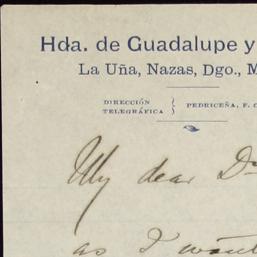 Hda. de Guadalupe y
La Uña, Nazas, Dgo., M
DIRECCIÓN
TELEGRÁFICA } PEDRICEÑA, F. C
My dear Dr
as I want